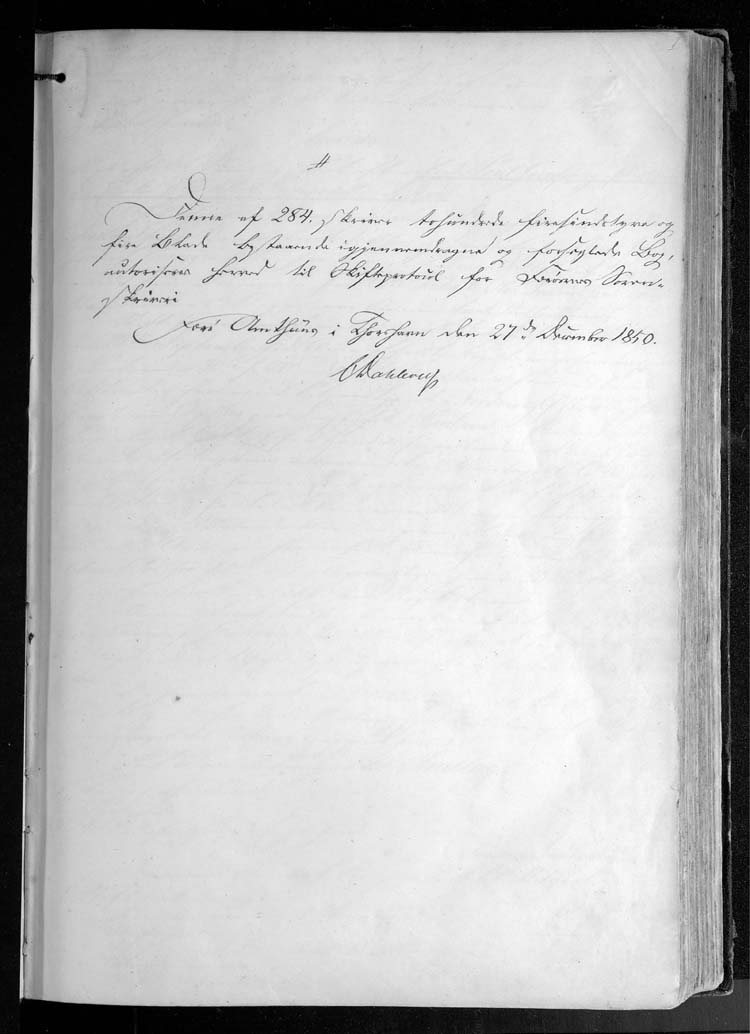 Denne af 284. skriver tohundrede firesindstyve og
fire Blade bestaaende igjennemdragne og forseglede Bog,
autoriseres herved til Skifteprotocol for Færøernes Soren-
skriveri
Færø Amthuus i Thorshavn den 27de December 1850.
CDahlerup